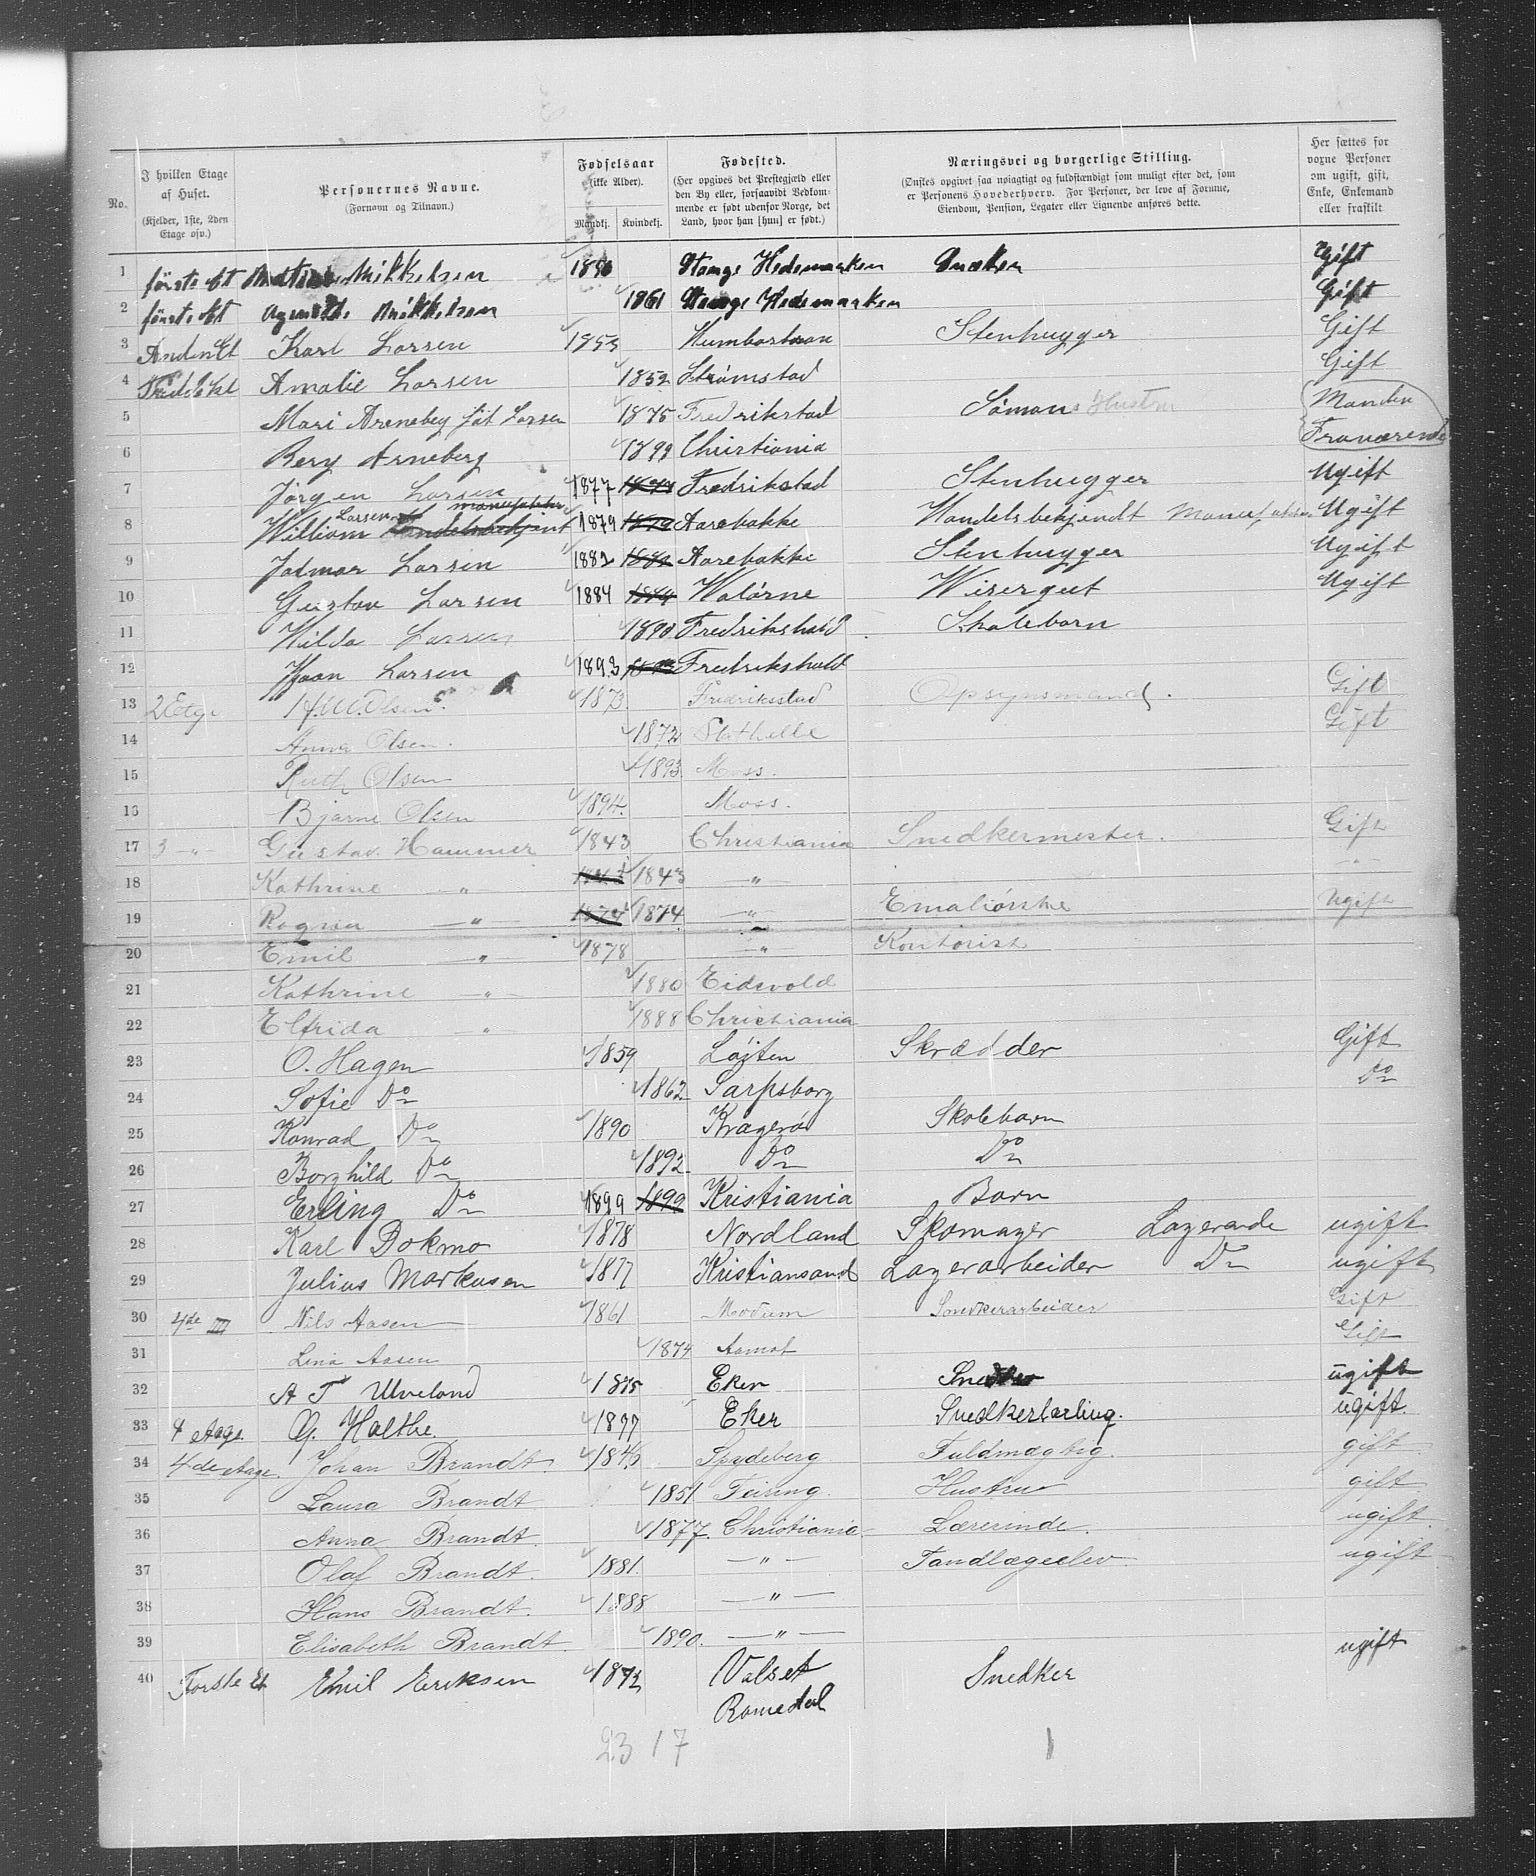 No.
I hvilken Etage af Huset. (Kjelder, 1ste, 2den Etage osv.)
Personernes Navne. (Fornavn og Tilnavn.)
Fødselsaar (ikke Alder). Mandkj. Kvindekj.
Fødested. (Her opgives det Prestegjæld eller den By eller, forsaavidt Vedkommende er født udenfor Norge, det Land, hvor han [hun] er født.)
Næringsvei og borgerlige Stilling. (Ønskes opgivet saa nøiagtigt og fuldstændigt som muligt efter det, som er Personens Hovederhverv. For Personer, der leve af Formue, Eiendom, Pension, Legater eller Lignende anføres dette.
Her sættes for voxne Personer om ugift, gift, Enke, Enkemand eller fraskilt
1 förste et Mikkelsen Stange Hedemarken Sneker Gift
2 förste et Mikkelsen 1861 Stange Hedemarken Gift
3 Anden Et Karl Larsen 1853 Stenhugger Gift
4 Amalie Larsen 1852 Strømstad Gift
5 Mari Arneberg föt Larsen 1875 Fredrikstad Sömans Hustru Manden
6 Berg Arneberg 1899 Christiania Fraværende
7 Jörgen Larsen 1877 Fredrikstad Stenhugger Ugift
8 William Larsen 1879 1879 Aarebakke Handelsbetjendt Ugift
9 Jalmar Larsen 1882 1882 Aarebakke Stenhugger Ugift
10 Gustav Larsen 1884 1884 Walörne Wisergut Ugift
11 Hilda Larsen 1890 Fredrikshald Skolebarn
12 Larsen 1893 Fredrikshald
13 2 Etge Olsen 1873 Fredriksstad Opsynsmand. Gift
14 Anna Olsen. 1872 Stathelle Gift
15 Ruth Olsen 1893 Moss.
16 Bjarne Olsen 1894. Moss.
17 3 -"- Gustav Hammer 1843 Christiania Snedkermester. Gift
18 Kathrine -"- 1843 1843 -"- -"-
19 Ragna -"- 1874 1874 -"- Emaliörske Ugift
20 Emil -"- 1878 -"- Kontorist
21 Kathrine -"- 1880 Eidsvold
22 Elfrida " 1888 Christiania
23 O. Hagen 1859 Løiten Skrædder Gift
24 Sofie Do 1862 Sarpsborg Do
25 Konrad Do 1890 Kragerø Skolebarn
26 Borghild Do 1892 Do Do
27 Erling Do 1899 1899 Kristiania Barn
28 Karl Dokmo 1878 Nordland Skomager Logerende ugift
29 Julius Markusen 1877 Kristiansand Lagerarbeider Do ugift
30 4de III Nils Aasen 1861 Modum Snedkerarbeider Gift
31 Lina Aasen 1874 Aamot Gift
32 A T Ulveland 1875 Eker Snedker ugift
33 4 etage. G. Holthe. 1877 Eker Snedkerlærling. ugift.
34 4de etage. Johan Brandt. 1846 Spydeberg Fuldmægtig. gift
35 Laura Brandt 1851 Feiring. Hustru gift
36 Anna Brandt. 1877. Christiania Lærerinde. ugift.
37 Olaf Brandt. 1881. -"- Tandlægeelev ugift
38 Hans Brandt. 1888 -"-
39 Elisabeth Brandt 1890. -"-
40 Förste Et Emil Eriksen 1872 Valset Romedal Snedker ugift
23 17 1